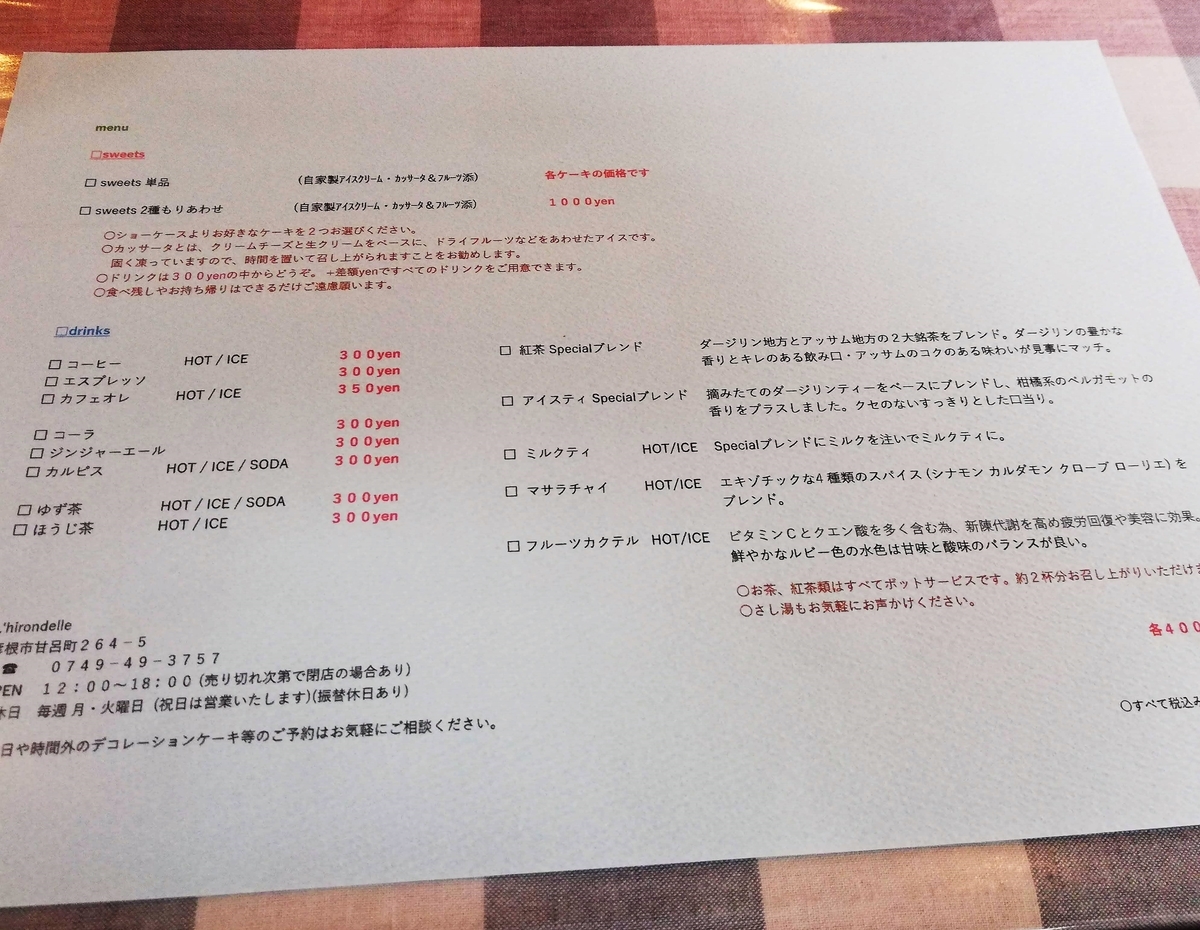 menu
□sweets
□ sweets 単品 (自家製ｱｲｽｸﾘｰﾑ・ｶｯｻｰﾀ＆ﾌﾙｰﾂ添) 各ケーキの価格です
□ sweets 2種もりあわせ (自家製ｱｲｽｸﾘｰﾑ・ｶｯｻｰﾀ＆ﾌﾙｰﾂ添) １０００yen
○ショーケースよりお好きなケーキを２つお選びください。
○カッサータとは、クリームチーズと生クリームをベースに、ドライフルーツなどをあわせたアイスです。
固く凍っていますので、時間を置いて召し上がられますことをお勧めします。
○ドリンクは３００yenの中からどうぞ。 +差額yenですべてのドリンクをご用意できます。
○食べ残しやお持ち帰りはできるだけご遠慮願います。
□drinks
□ コーヒー HOT / ICE ３００yen
□ エスプレッソ ３００yen
□ カフェオレ HOT / ICE ３５０yen
□ コーラ ３００yen
□ ジンジャーエール ３００yen
□ カルピス HOT / ICE / SODA ３００yen
□ ゆず茶 HOT / ICE / SODA ３００yen
□ ほうじ茶 HOT / ICE ３００yen
□ 紅茶 Specialブレンド ダージリン地方とアッサム地方の２大銘茶をブレンド。ダージリンの豊かな
香りとキレのある飲み口・アッサムのコクのある味わいが見事にマッチ。
□ アイスティ Specialブレンド 摘みたてのダージリンティーをベースにブレンドし、柑橘系のベルガモットの
香りをプラスしました。クセのないすっきりとした口当り。
□ ミルクティ HOT/ICE Specialブレンドにミルクを注いでミルクティに。
□ マサラチャイ HOT/ICE エキゾチックな4 種類のスパイス (シナモン カルダモン クローブ ローリエ) を
ブレンド。
□ フルーツカクテル HOT/ICE ビタミンＣとクエン酸を多く含む為、新陳代謝を高め疲労回復や美容に効果。
鮮やかなルビー色の水色は甘味と酸味のバランスが良い。
○お茶、紅茶類はすべてポットサービスです。約２杯分お召し上がりいただけま
○さし湯もお気軽にお声かけください。
各４００
○すべて税込み
L'hirondelle
彦根市甘呂町２６４－５
☎ ０７４９－４９－３７５７
OPEN １２：００～１８：００ (売り切れ次第で閉店の場合あり)
休日 毎週 月・火曜日 (祝日は営業いたします)(振替休日あり)
日や時間外のデコレーションケーキ等のご予約はお気軽にご相談ください。